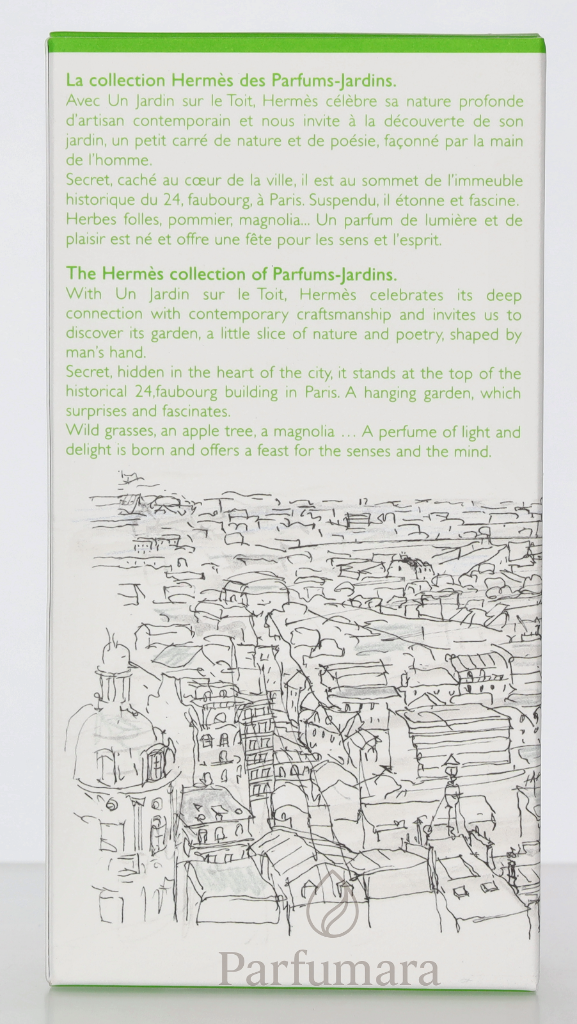 La collection Hermès des Parfums-Jardins.
Avec Un Jardin sur le Toit, Hermès célèbre sa nature profonde
d'artisan contemporain et nous invite à la découverte de son
jardin, un petit carré de nature et de poésie, façonné par la main
de l'homme.
Secret, caché au cœur de la ville, il est au sommet de l'immeuble
historique du 24, faubourg, à Paris. Suspendu, il étonne et fascine.
Herbes folles, pommier, magnolia... Un parfum de lumière et de
plaisir est né et offre une fête pour les sens et l'esprit.
The Hermès collection of Parfums-Jardins.
With Un Jardin sur le Toit, Hermès celebrates its deep
connection with contemporary craftsmanship and invites us to
discover its garden, a little slice of nature and poetry, shaped by
man's hand.
Secret, hidden in the heart of the city, it stands at the top of the
historical 24,faubourg building in Paris. A hanging garden, which
surprises and fascinates.
Wild grasses, an apple tree, a magnolia … A perfume of light and
delight is born and offers a feast for the senses and the mind.
Parfumara